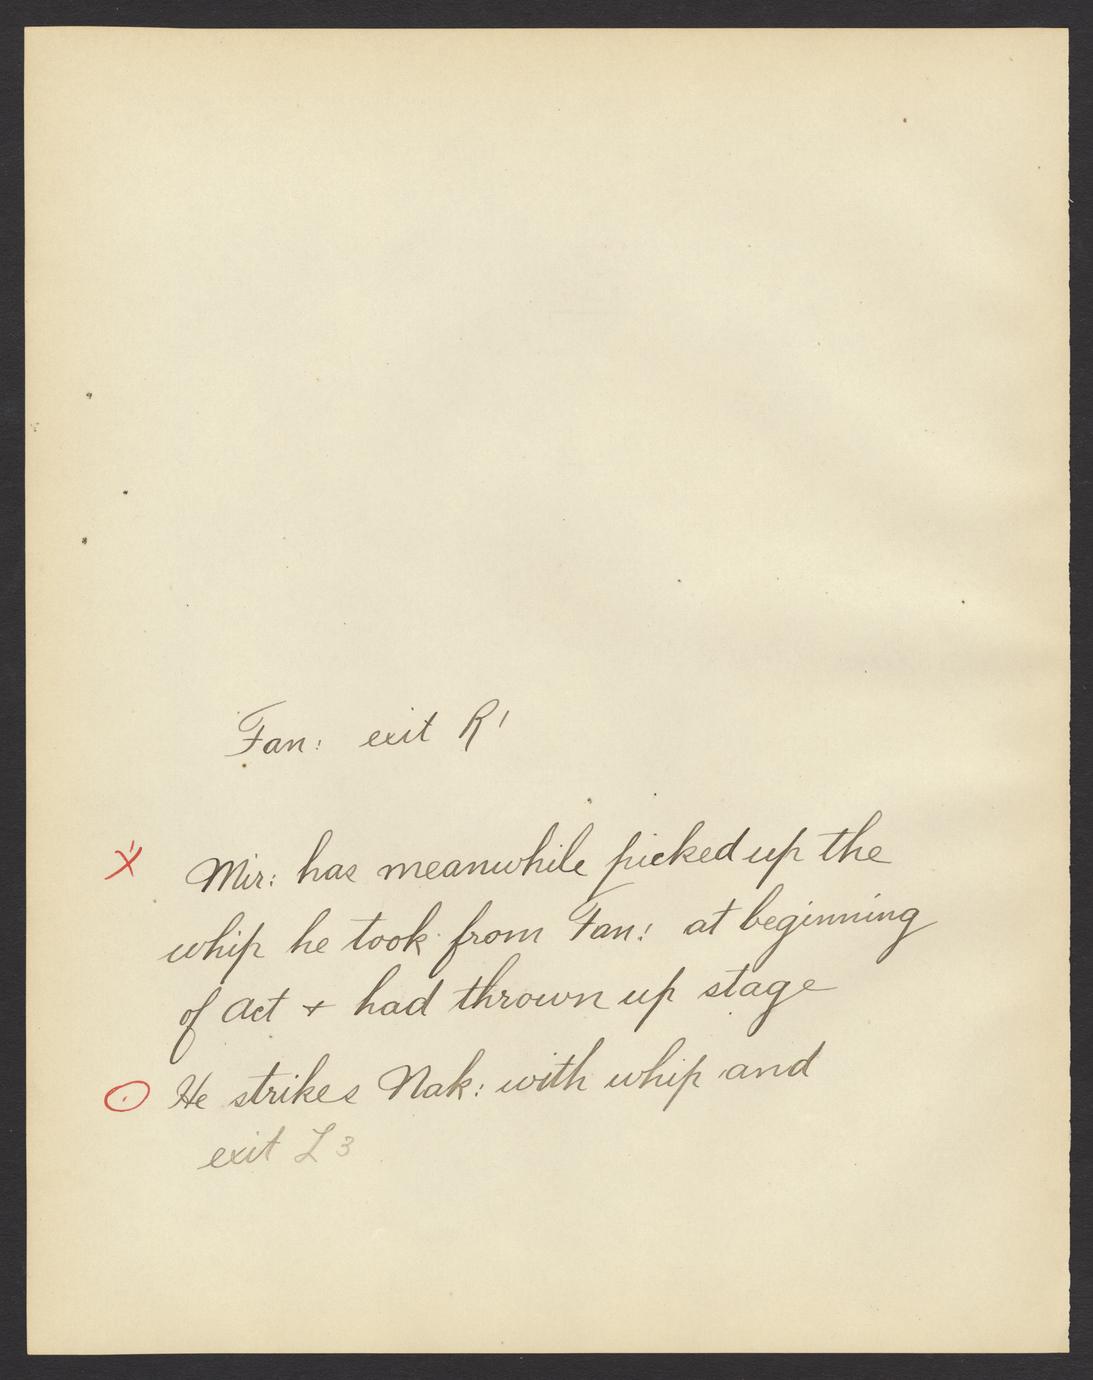 Fan: exit R1
X Mir: has meanwhile picked up the
whip he took from Fan: at beginning
of Act + had thrown up stage
He strikes Nak: with whip and
exit L 3